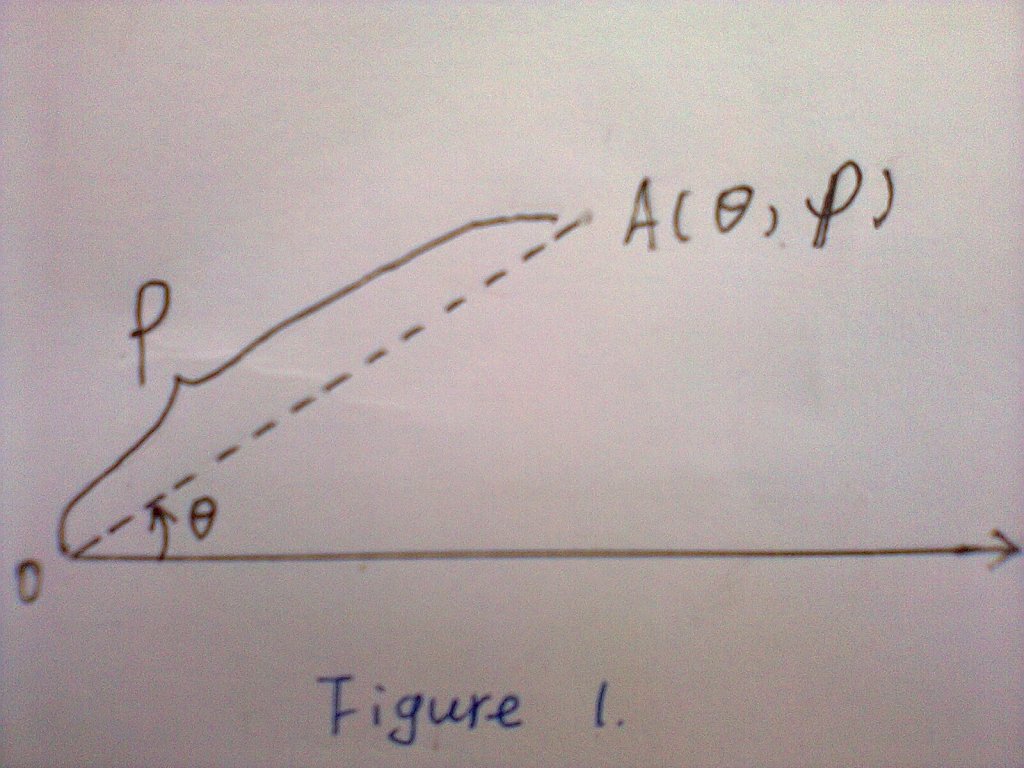 A(θ, ρ)
ρ
θ
O
Figure 1.